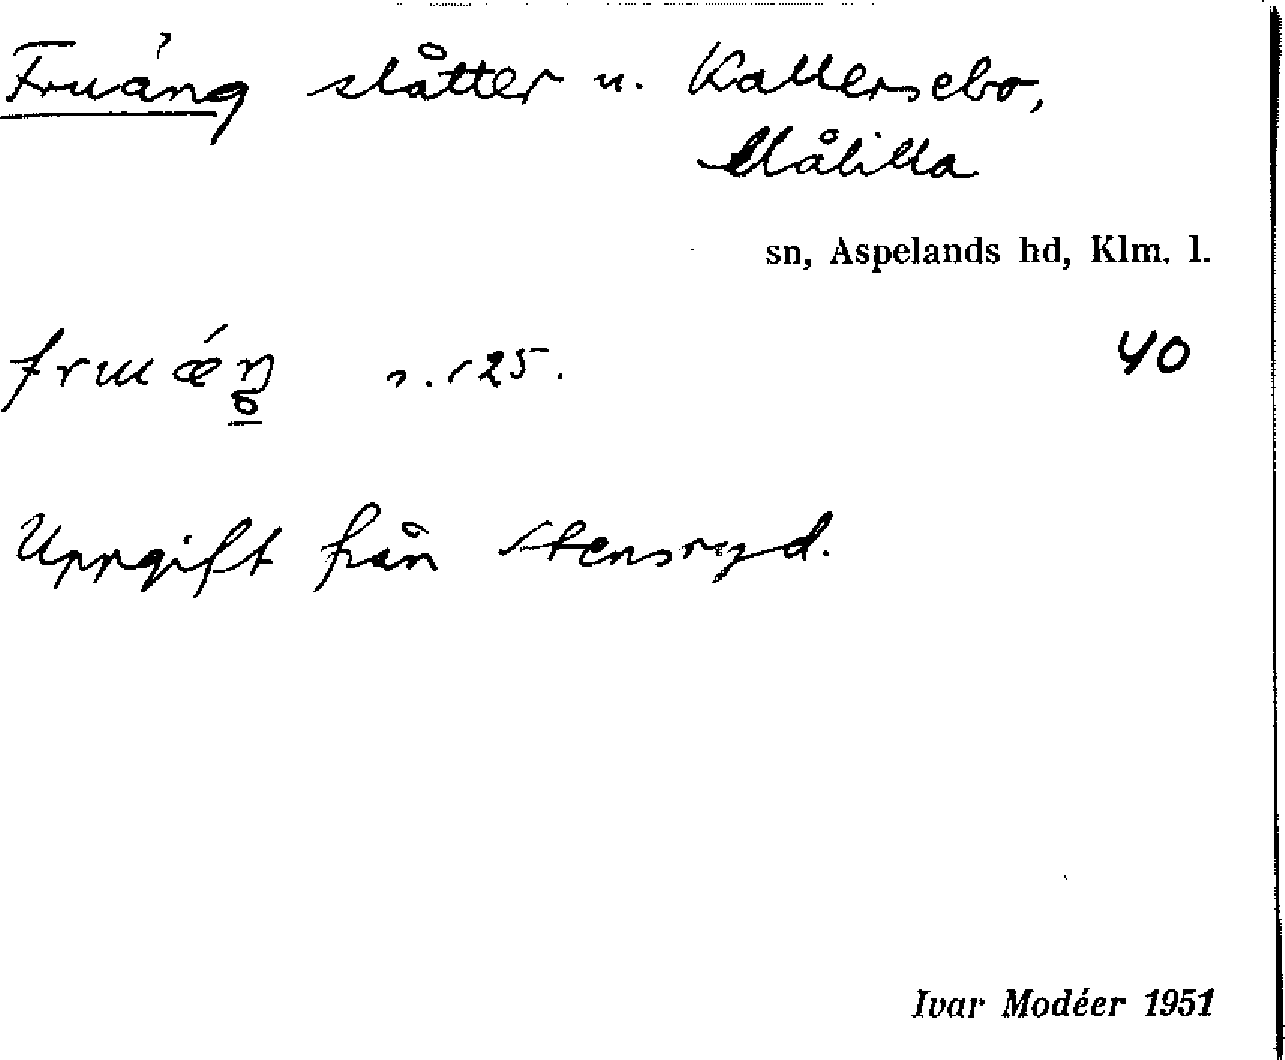 Fruäng slåtter u. Kallersebo,
Målilla
sn, Aspelands hd, Klm. l.
40
s. 125.
Uppgift från Stensryd.
Ivar Modéer 1951